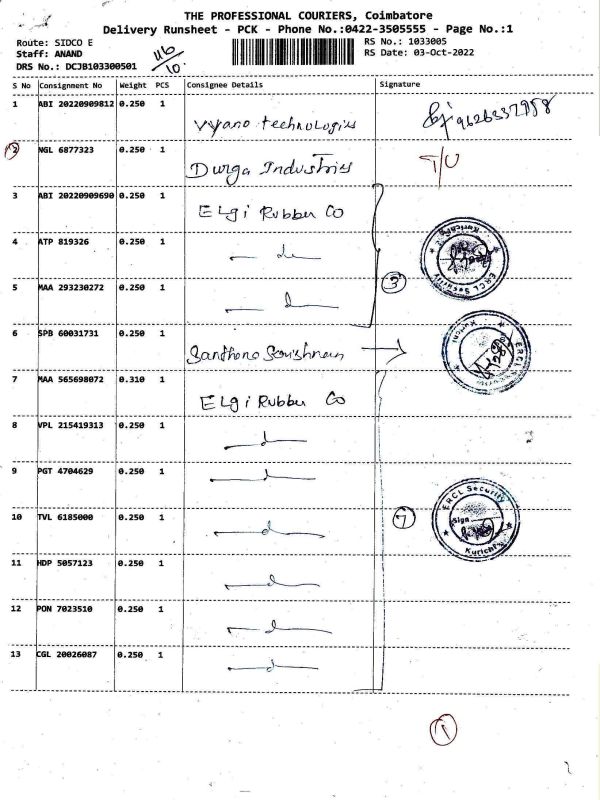 THE PROFESSIONAL COURIERS, Coimbatore
Delivery Runsheet - PCK - Phone No.:0422-3505555 - Page No.:1
Route: SIDCO E
Staff: ANAND
DRS No.: DCJB103300501
RS No.: 1033005
RS Date: 03-Oct-2022
S No Consignment No Weight PCS Consignee Details Signature
1 ABI 20220909812 0.250 1 Vyano technologies
2 NGL 6877323 0.250 1 Durga Industries T/U
3 ABI 20220909690 0.250 1 Elgi Rubber Co
4 ATP 819326 0.250 1 do
5 MAA 293230272 0.250 1 do
3
ERCL Security
6 SPB 60031731 0.250 1
ERCL Security Kurichi
7 MAA 565698072 0.310 1 Elgi Rubber Co
8 VPL 215419313 0.250 1
9 PGT 4704629 0.250 1
10 TVL 6185000 0.250 1
7
ERCL Security
Sign
Kurichi
11 HDP 5057123 0.250 1
12 PON 7023510 0.250 1
13 CGL 20026087 0.250 1
1